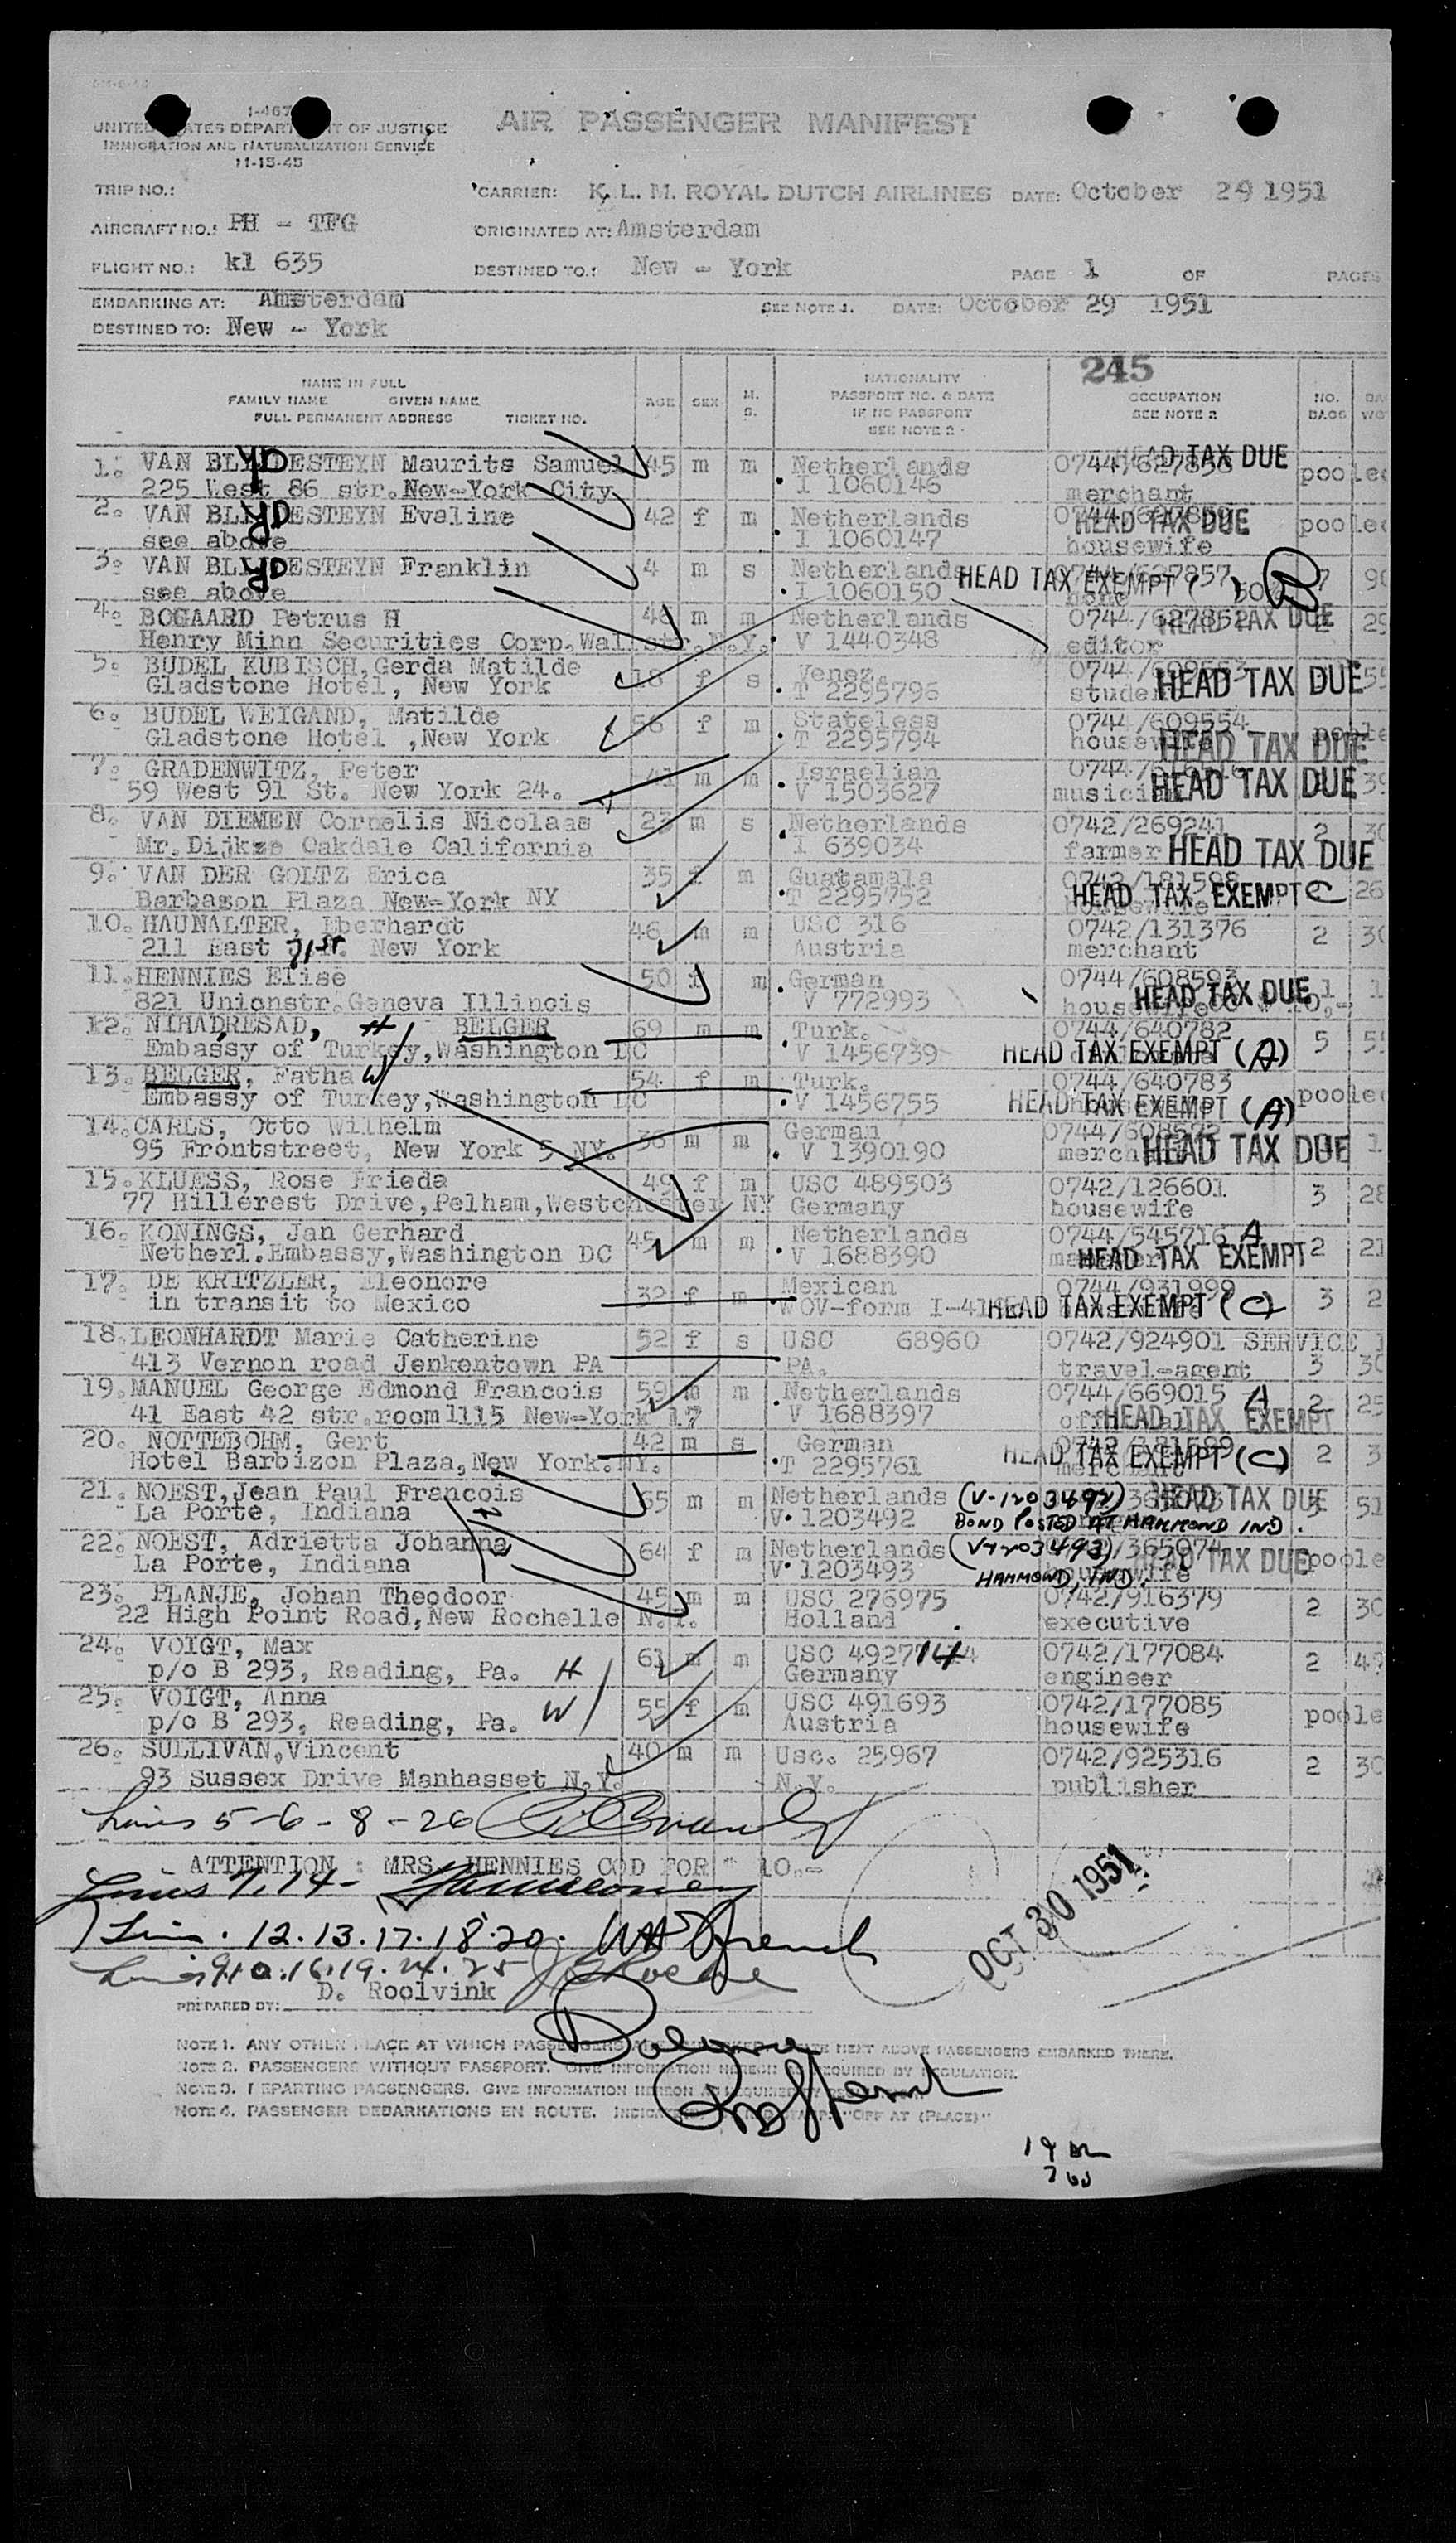 I-467
UNITED STATES DEPARTMENT OF JUSTICE
IMMIGRATION AND NATURALIZATION SERVICE
11-15-45
AIR PASSENGER MANIFEST
TRIP NO.:
CARRIER: K. L. M. ROYAL DUTCH AIRLINES DATE: October 29 1951
AIRCRAFT NO.: PH - TFG
ORIGINATED AT: Amsterdam
FLIGHT NO.: kl 635
DESTINED TO.: New - York
PAGE 1 OF PAGES
EMBARKING AT: Amsterdam
SEE NOTE 1. DATE: October 29 1951
DESTINED TO: New - York
245
NAME IN FULL
FAMILY NAME GIVEN NAME
FULL PERMANENT ADDRESS TICKET NO.
AGE SEX M. S.
NATIONALITY
PASSPORT NO. & DATE
IF NO PASSPORT
SEE NOTE 2
OCCUPATION
SEE NOTE 2
NO. BAGS
1. VAN ESTEYN Maurits Samuel 45 m m Netherlands 0744/627856 HEAD TAX DUE
225 West 86 str. New-York City I 1060146 merchant pooled
2. VAN ESTEYN Evaline 42 f m Netherlands HEAD TAX DUE
see above I 1060147 housewife pooled
3. VAN ESTEYN Franklin 4 m s Netherlands 0744/627857 HEAD TAX EXEMPT ( ) B
see above I 1060150 none 7 90
4. BOGAARD Petrus H 48 m m Netherlands 0744/627862 HEAD TAX DUE
Henry Minn Securities Corp. Wall str. N.Y. V 1440348 editor 2 29
5. BUDEL KUBISCH, Gerda Matilde 18 f s Venez. 0744/609553
Gladstone Hotel, New York T 2295796 student HEAD TAX DUE 55
6. BUDEL WEIGAND, Matilde 56 f m Stateless 0744/609554
Gladstone Hotel ,New York T 2295794 housewife HEAD TAX DUE
7. GRADENWITZ, Peter 41 m m Israelian
59 West 91 St. New York 24. V 1503627 musician HEAD TAX DUE 39
8. VAN DIEMEN Cornelis Nicolaas 23 m s Netherlands 0742/269241 2 30
Mr. Dijkse Oakdale California I 639034 farmer HEAD TAX DUE
9. VAN DER GOLTZ Erica 35 f m Guatamala 0742/181598
Barbason Plaza New-York NY T 2295752 HEAD TAX EXEMPT C 26
10. HAUNALTER, Eberhardt 46 m m USC 316 0742/131376
211 East 71 st. New York Austria merchant 2 30
11. HENNIES Elise 50 f m German 0744/608593
821 Unionstr. Geneva Illinois V 772993 housewife HEAD TAX DUE 1
12. NIHADRESAD, H BELGER 69 m m Turk. 0744/640782
Embassy of Turkey, Washington DC V 1456739 HEAD TAX EXEMPT (A) 5
13. BELGER, Fatha W 54 f m Turk. 0744/640783
Embassy of Turkey, Washington DC V 1456755 HEAD TAX EXEMPT (A) pooled
14. CARLS, Otto Wilhelm 36 m m German
95 Frontstreet, New York 5 NY. V 1390190 merchant HEAD TAX DUE
15. KLUESS, Rose Frieda 49 f m USC 489503 0742/126601
77 Hillerest Drive, Pelham, Westchester NY Germany housewife 3 28
16. KONINGS, Jan Gerhard 45 m m Netherlands 0744/545716 A
Netherl. Embassy, Washington DC V 1688390 HEAD TAX EXEMPT 2 21
17. DE KRITZLER, Eleonore 32 f m Mexican 0744/931999
in transit to Mexico WOV-form HEAD TAX EXEMPT (C) 3 2
18. LEONHARDT Marie Catherine 52 f s USC 68960 0742/924901 SERVICE
413 Vernon road Jenkentown PA PA. travel-agent 3 30
19. MANUEL George Edmond Francois 59 m m Netherlands 0744/669015 A 2 25
41 East 42 str. room 1115 New-York 17 V 1688397 official HEAD TAX EXEMPT
20. NOTTEBOHM, Gert 42 m s German 0742/181599
Hotel Barbizon Plaza, New York. NY. T 2295761 merchant HEAD TAX EXEMPT (C) 2 3
21. NOEST, Jean Paul Francois 65 m m Netherlands (V-1203492) HEAD TAX DUE 51
La Porte, Indiana V 1203492 BOND POSTED AT HAMMOND IND.
22. NOEST, Adrietta Johanna W 64 f m Netherlands (V-1203493) /365074
La Porte, Indiana V 1203493 HAMMOND, IND. housewife HEAD TAX DUE
23. PLANJE, Johan Theodoor 45 m m USC 276975 0742/916379
22 High Point Road, New Rochelle N.Y. Holland executive 2 30
24. VOIGT, Max 61 m m USC 4927714 0742/177084
p/o B 293, Reading, Pa. H Germany engineer 2 49
25. VOIGT, Anna 55 f m USC 491693 0742/177085
p/o B 293, Reading, Pa. W Austria housewife
26. SULLIVAN, Vincent 40 m m Usc. 25967 0742/925316
93 Sussex Drive Manhasset N.Y. N.Y. publisher 2 30
Lines 5-6-8-26
ATTENTION : MRS. HENNIES COD FOR 10.-
Lines 7.14-
OCT 30 1951
Lines. 12.13.17.18.20.
Lines 9.10.16.19.24.25
PREPARED BY: D. Roolvink
NOTE 1. ANY OTHER PLACE AT WHICH PASSENGERS ARE NEXT ABOVE PASSENGERS EMBARKED THERE.
NOTE 2. PASSENGERS WITHOUT PASSPORT. GIVE INFORMATION HEREON AS REQUIRED BY REGULATION.
NOTE 3. DEPARTING PASSENGERS. GIVE INFORMATION HEREON AS REQUIRED BY
NOTE 4. PASSENGER DEBARKATIONS EN ROUTE. "OFF AT (PLACE)"